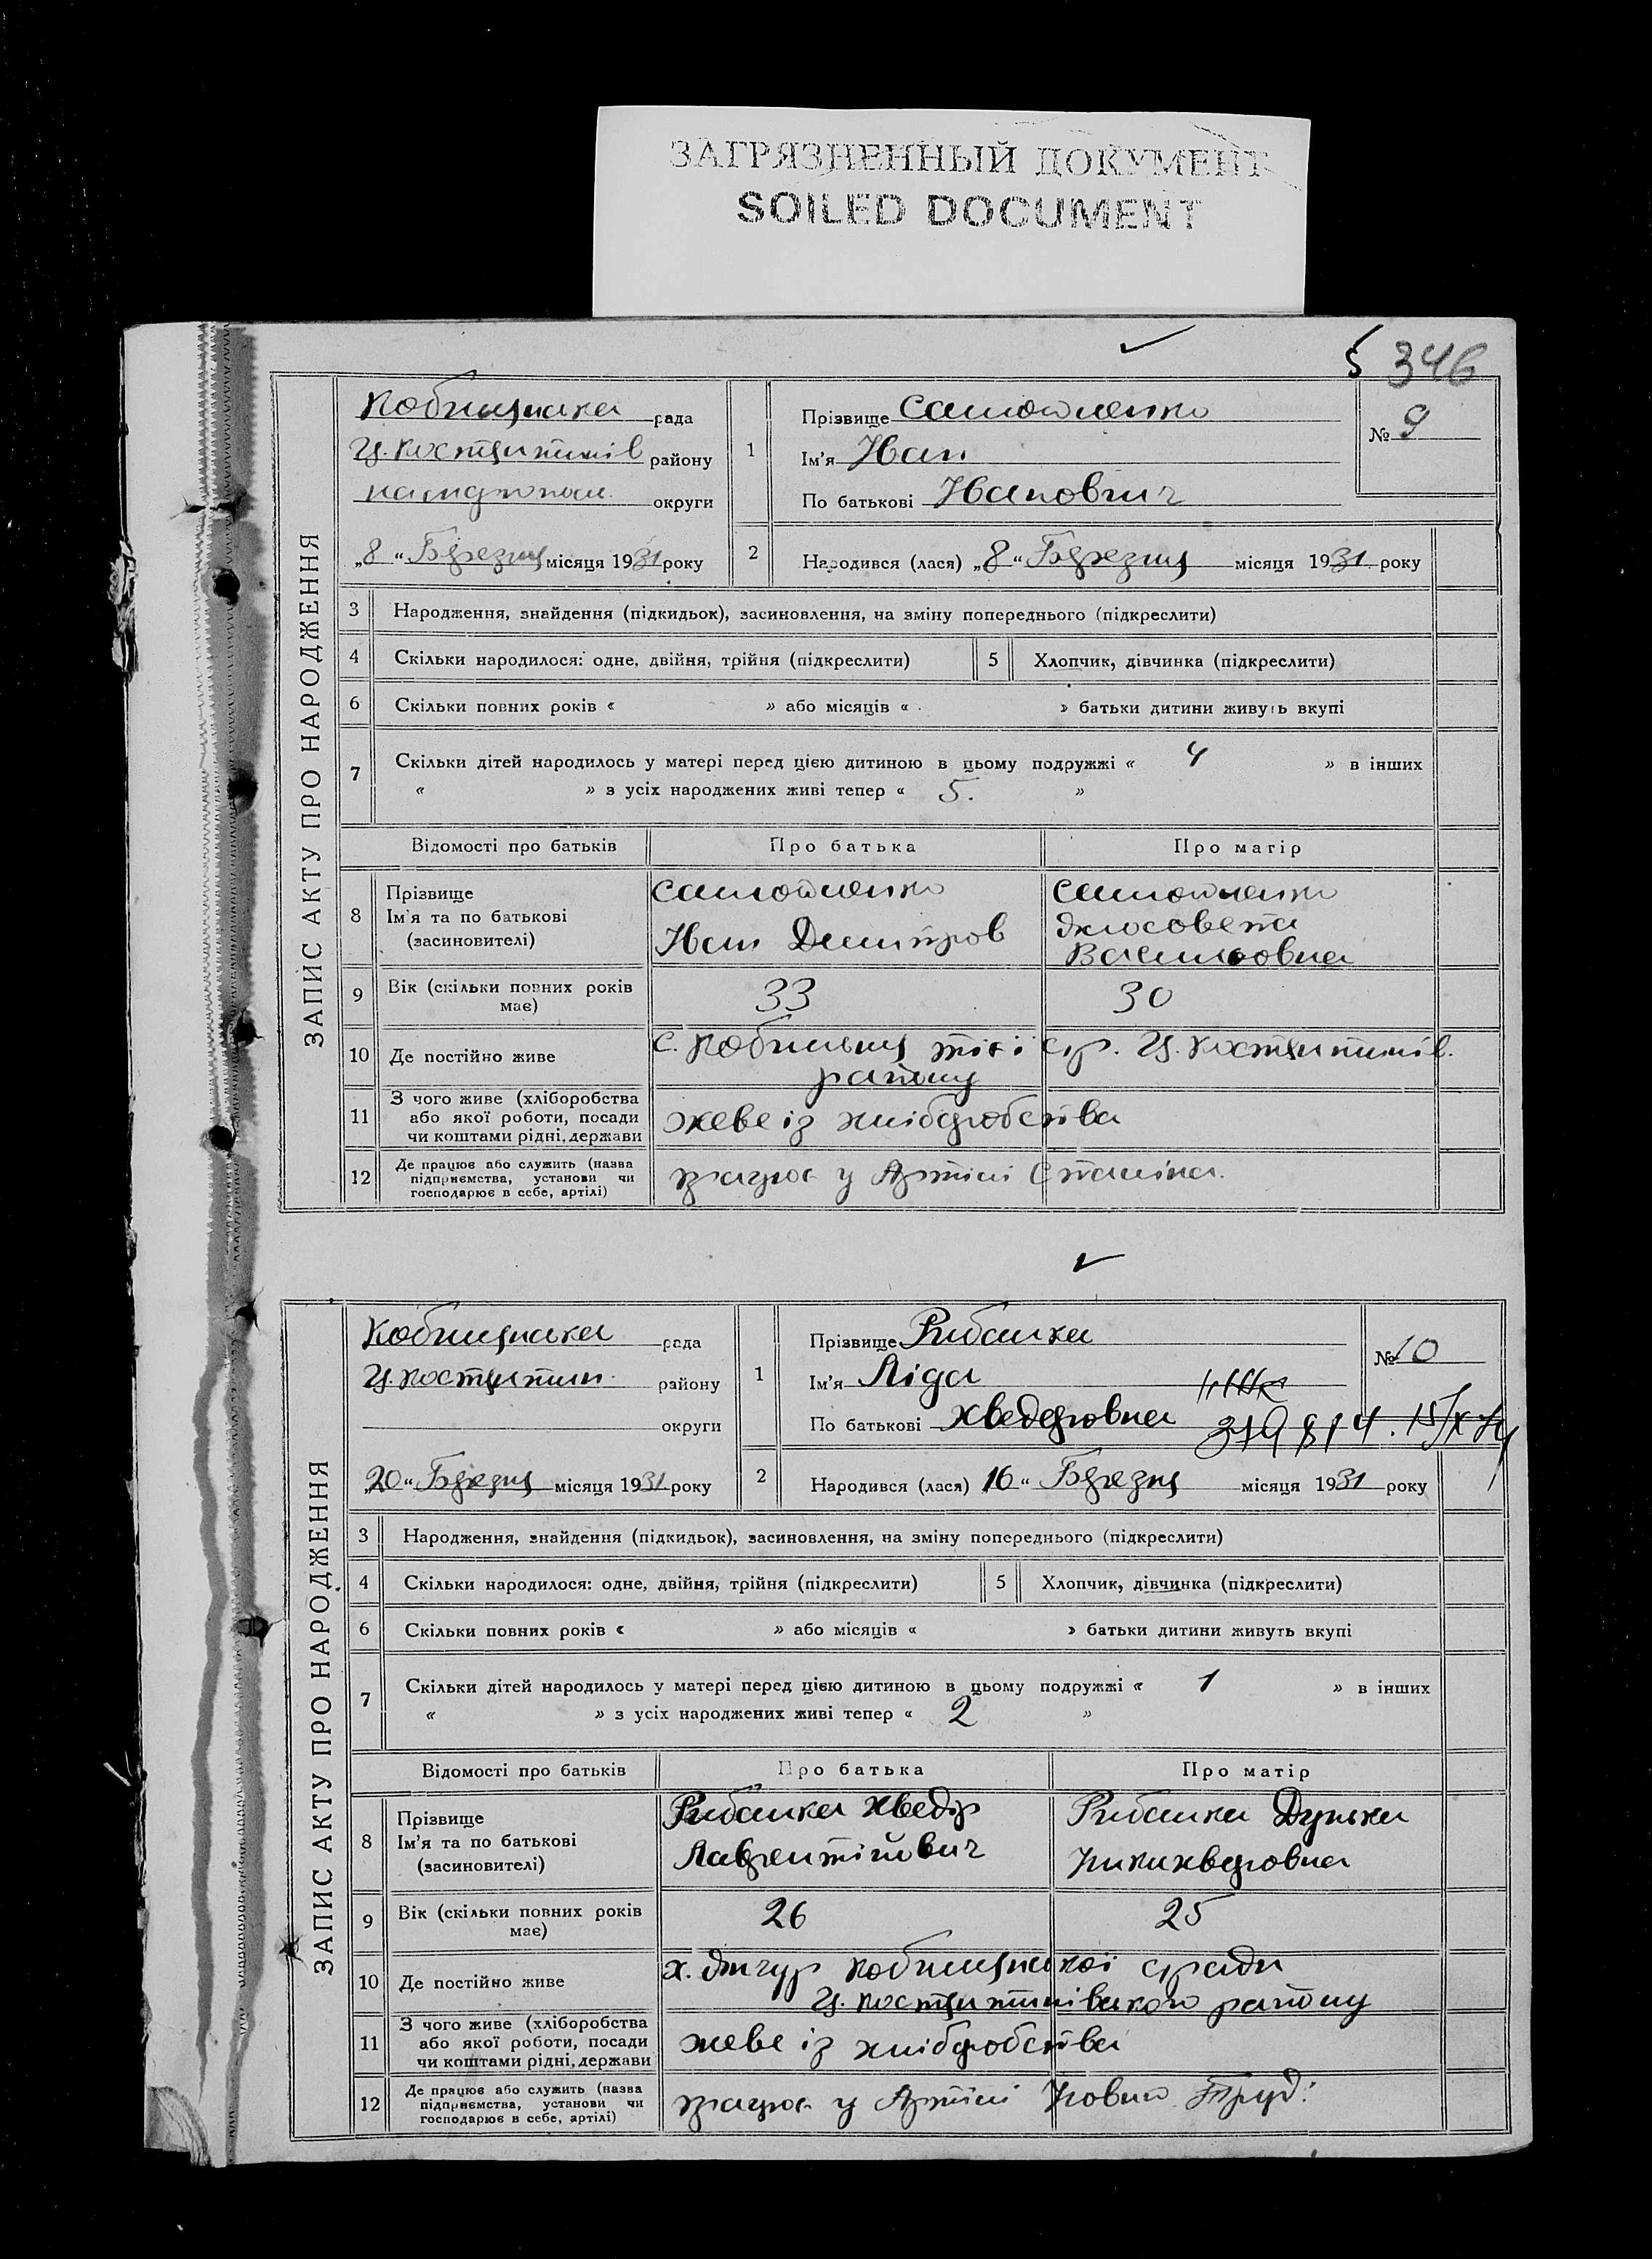 ЗАГРЯЗНЕННЫЙ ДОКУМЕНТ
SOILED DOCUMENT
346
ЗАПИС АКТУ ПРО НАРОДЖЕННЯ
рада
району
округи
„8“ Березня місяця 1931 року
1
Прізвище Самойленко
Ім'я Иван
По батькові Иванович
№ 9
2
Народився (лася) „8“ Березня місяця 1931 року
3 Народження, знайдення (підкидьок), засиновлення, на зміну попереднього (підкреслити)
4 Скільки народилося: одне, двійня, трійня (підкреслити) 5 Хлопчик, дівчинка (підкреслити)
6 Скільки повних років « » або місяців « » батьки дитини живуть вкупі
7 Скільки дітей народилось у матері перед цією дитиною в цьому подружжі « 4 » в інших
« » з усіх народжених живі тепер « 5. »
Відомості про батьків Про батька Про матір
8 Прізвище Ім'я та по батькові (засиновителі)
Самойленко Иван Дмитров
Самойленко
9 Вік (скільки повних років має) 33 30
10 Де постійно живе
району
11 З чого живе (хліборобства або якої роботи, посади чи коштами рідні, держави
жеве із хліборобства
12 Де працює або служить (назва підприємства, установи чи господарює в себе, артілі)
працює у Артілі Сталіна.
ЗАПИС АКТУ ПРО НАРОДЖЕННЯ
рада
району
округи
„20“ Березня місяця 1931 року
1
Прізвище Рибалка
Ім'я Ліда
По батькові Хведоровна
№ 10
2
Народився (лася) 16“ Березня місяця 1931 року
3 Народження, знайдення (підкидьок), засиновлення, на зміну попереднього (підкреслити)
4 Скільки народилося: одне, двійня, трійня (підкреслити) 5 Хлопчик, дівчинка (підкреслити)
6 Скільки повних років « » або місяців « » батьки дитини живуть вкупі
7 Скільки дітей народилось у матері перед цією дитиною в цьому подружжі « 1 » в інших
« » з усіх народжених живі тепер « 2 »
Відомості про батьків Про батька Про матір
8 Прізвище Ім'я та по батькові (засиновителі)
Рибалка Хведір Лаврентійович
Рибалка Дунька
9 Вік (скільки повних років має) 26 25
10 Де постійно живе
району
11 З чого живе (хліборобства або якої роботи, посади чи коштами рідні, держави
жеве із хліборобства
12 Де працює або служить (назва підприємства, установи чи господарює в себе, артілі)
працює у Артілі Новий Труд.